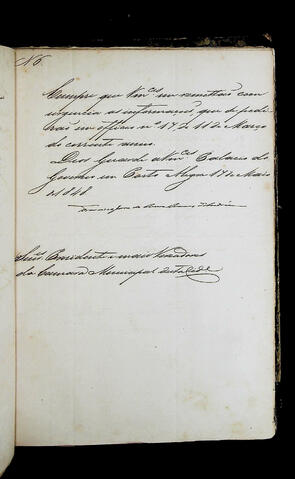 N 6.
Cumpre que Vm.ces me remettão com
urgencia as informações, que se pedi-
rão em officio nº 17 de 16 de Março
do corrente anno.
Deos Guarde a Vm.ces Palacio do
Governo em Porto Alegre 17 de Maio
de 1848
Senr.es Presidente e mais Vereadores
da Camara Municipal desta Cid.e